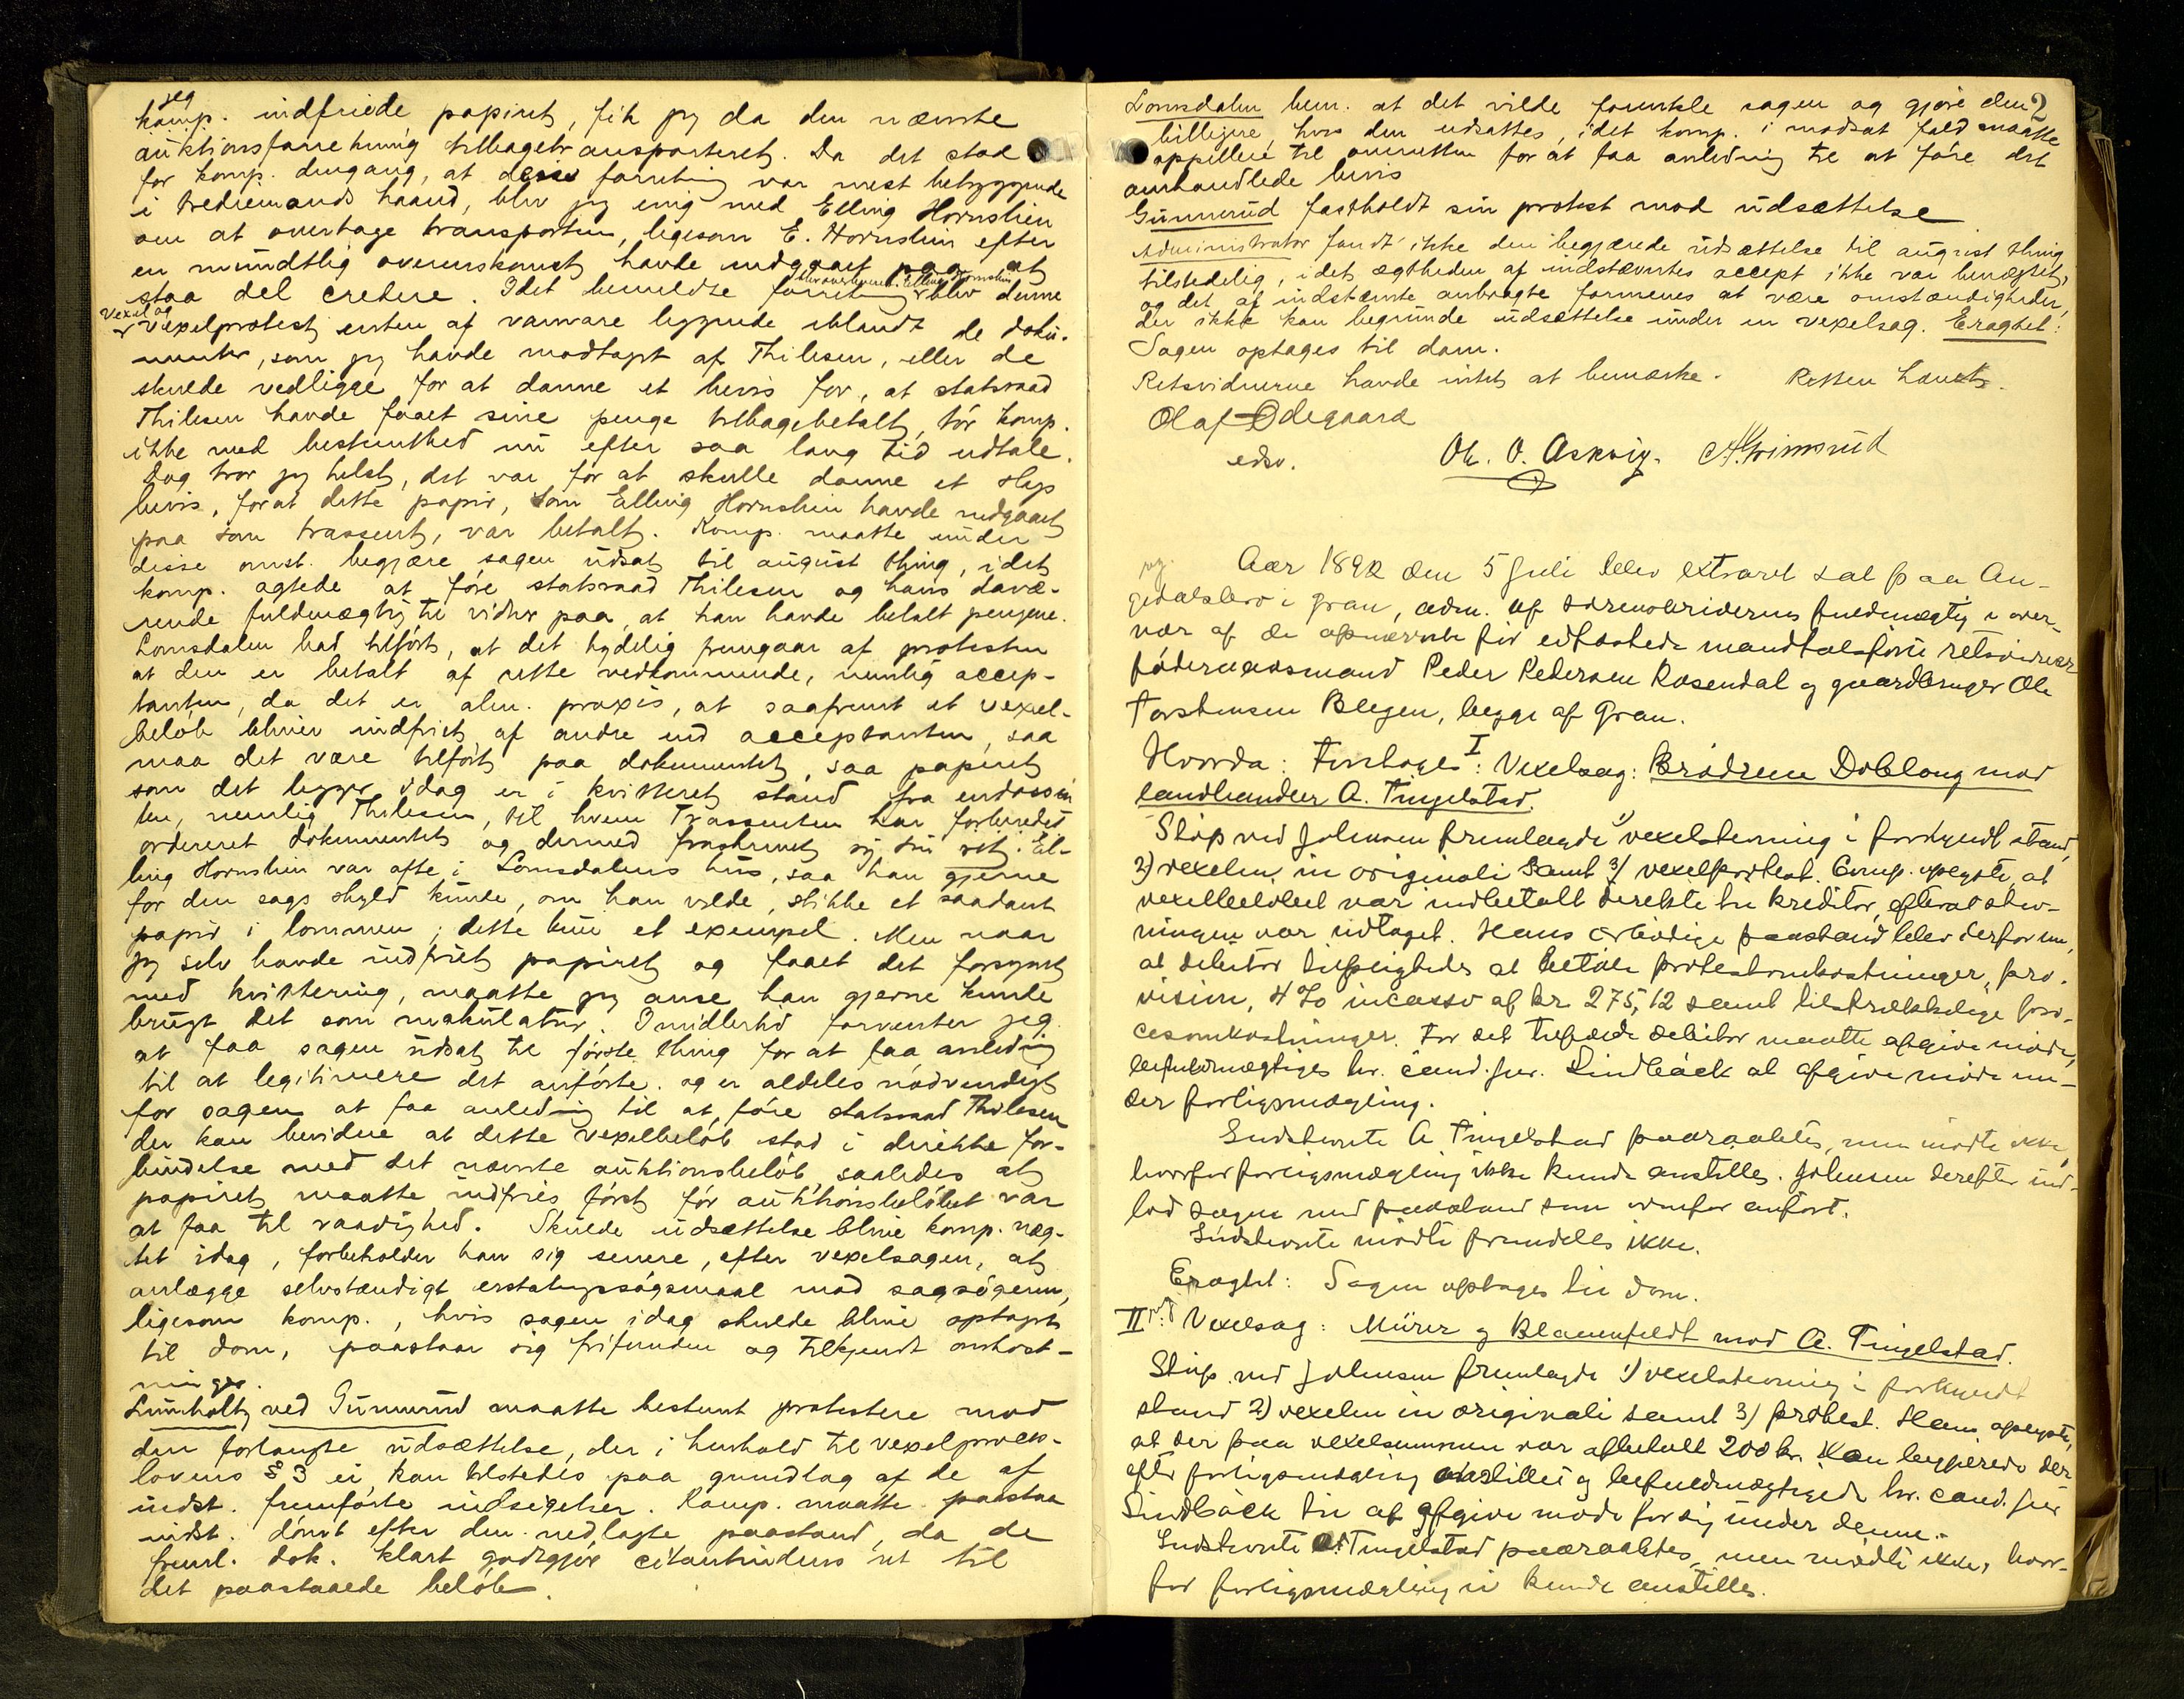 jeg
komp. indfriede papiret, fik jeg da den nævnte
auktionsforretning tilbagetransporteret. Da det stod
for komp. dengang, at denne forretning var mest betryggende
i trediemands haand, blev jeg enig med Elling Hornslien
om at overtage transporten, ligesom E. Hornslien efter
en mundtlig overenskomst havde indgaaet paa at
staa del credere. Idet bemeldte forretning blev denne
vexel og
vexelprotest enten af vanvare liggende iblandt de doku-
menter, som jeg havde modtaget af Thilesen, eller de
skulde vedligge for at danne et bevis for, at statsraad
Thilesen havde faaet sine penge tilbagebetalt, tør komp.
ikke med bestemthed nu efter saa lang tid udtale.
Dog tror jeg helst, det var for at skulle danne et slags
bevis, for at dette papir, som Elling Hornslien havde indgaaet
paa som trassent, var betalt. Komp. maatte under
disse omst. begjære sagen udsat til august thing, idet
komp. agtede at føre statsraad Thilesen og hans davæ-
rende fuldmægtig til vidner paa, at han havde betalt pengene.
Lomsdalen bad tilført, at det tydelig fremgaar af protesten
at den er betalt af rette vedkommende, nemlig accep-
tanten, da det er alm. praxis, at saafremt et vexel-
beløb bliver indfriet af andre end acceptanten, saa
maa det være tilført paa dokumentet, saa papiret
som det ligger idag er i kvitteret stand fra endossen-
ten, nemlig Thilesen, til hvem Trassenten har
ordreret dokumentet og dermed fraskrevet sig sin ret. El-
ling Hornslien var ofte i Lomsdalens hus, saa han gjerne
for den sags skyld kunde, om han vilde, stikke et saadant
papir i lommen; dette kun et exempel. Men naar
jeg selv havde indfriet papiret og faaet det forsynet
med kvittering, maatte jeg anse han gjerne kunde
brugt det som makulatur. Imidlertid forventer jeg
at faa sagen udsat til første thing for at faa anledning
til at legitimere det anførte. og er aldeles nødvendigt
for sagen at faa anledning til at føre statsraad Thilesen
der kan bevidne at dette vexelbeløb stod i direkte for-
bindelse med det nævnte auktionsbeløb saaledes at
papiret maatte indfries først før auktionsbeløbet var
at faa til raadighed. Skulde udsættelse blive komp. næg-
tet idag, forbeholder han sig senere, efter vexelsagen, at
anlægge selvstændigt erstatningssøgsmaal mod sagsøgeren,
ligesom komp., hvis sagen idag skulde blive optaget
til dom, paastaar sig frifunden og tilkjendt omkost-
ninger.
Lumholtz ved Gunnerud maatte bestemt protestere mod
den forlangte udsættelse, der i henhold til vexelproces-
lovens § 3 ei kan tilstedes paa grundlag af de af
indst. fremførte indsigelser. Komp. maatte paastaa
indst. dømt efter den nedlagte paastand, da de
freml. dok. klart godtgjør citantindens ret til
det paastaaede beløb.
2
Lomsdalen bem. at det vilde forenkle sagen og gjøre den
billigere, hvis den udsattes, idet komp. i modsat fald maatte
appellere til overretten for at faa anledning til at føre det
omhandlede bevis
Gunnerud fastholdt sin protest mod udsættelse
Administrator fandt ikke den begjærede udsættelse til august thing
tilstedelig, idet ægtheden af indstævntes accept ikke var benægtet,
og det af indstævnte anbragte formenes at være omstændigheder,
der ikke kan begrunde udsættelse under en vexelsag. Eragtet:
Sagen optages til dom.
Retsvidnerne havde intet at bemærke. Retten hævet.
Olaf Ødegaard
edsv.
Ole. O. Askvig. A. Grimsrud
Aar 1892 den 5 juli blev extraret sat paa An-
gedalsbro i Gran, adm. af sorenskriverens fuldmægtig i over-
vær af de opnævnte før edfæstede mandtalsførte retsvidner
føderaadsmand Peder Pedersen Rosendal og gaardbruger Ole
Torstensen Blegen, begge af Gran.
Hvorda: Foretoges I: Vexelsag: Brødrene Dobloug mod
landhandler A. Tingelstad.
Stop ved Johnsen fremlagde 1) vexelstevning i forkyndt stand,
2) vexelen in originali samt 3) vexelprotest. Comp. oplyste, at
vexelbeløbet var indbetalt direkte til kreditor, efterat stev-
ningen var udtaget. Hans ærbødige paastand blev derfor nu,
at debitor tilpligtedes at betale protestomkostninger, pro-
vision, 4 % incasso af kr. 275,12 samt tilstrækkelige pro-
cesomkostninger. For det tilfælde debitor maatte afgive møde,
befuldmægtiges hr. cand. jur. Lindbäck at afgive møde un-
der forligsmægling.
Indstevnte A Tingelstad paaraabtes, men mødte ikke,
hvorfor forligsmægling ikke kunde anstilles. Johnsen derefter ind-
lod sagen med paastand som ovenfor anført.
Indstevnte mødte fremdeles ikke.
Eragtet: Sagen optages til dom.
II Vexelsag: Mürer og Blauenfeldt mod A. Tingelstad.
Stop ved Johnsen fremlagde 1) vexelstevning i forkyndt
stand 2) vexelen in originali samt 3) protest. Hans oplyste,
at der paa vexelsummen var afbetalt 200 kr. Han begjærede der-
efter forligsmægling anstillet og befuldmægtigede hr. cand. jur
Lindbäck til at afgive møde for sig under denne.
Indstevnte A. Tingelstad paaraabtes, men mødte ikke, hvor-
for forligsmægling ei kunde anstilles.